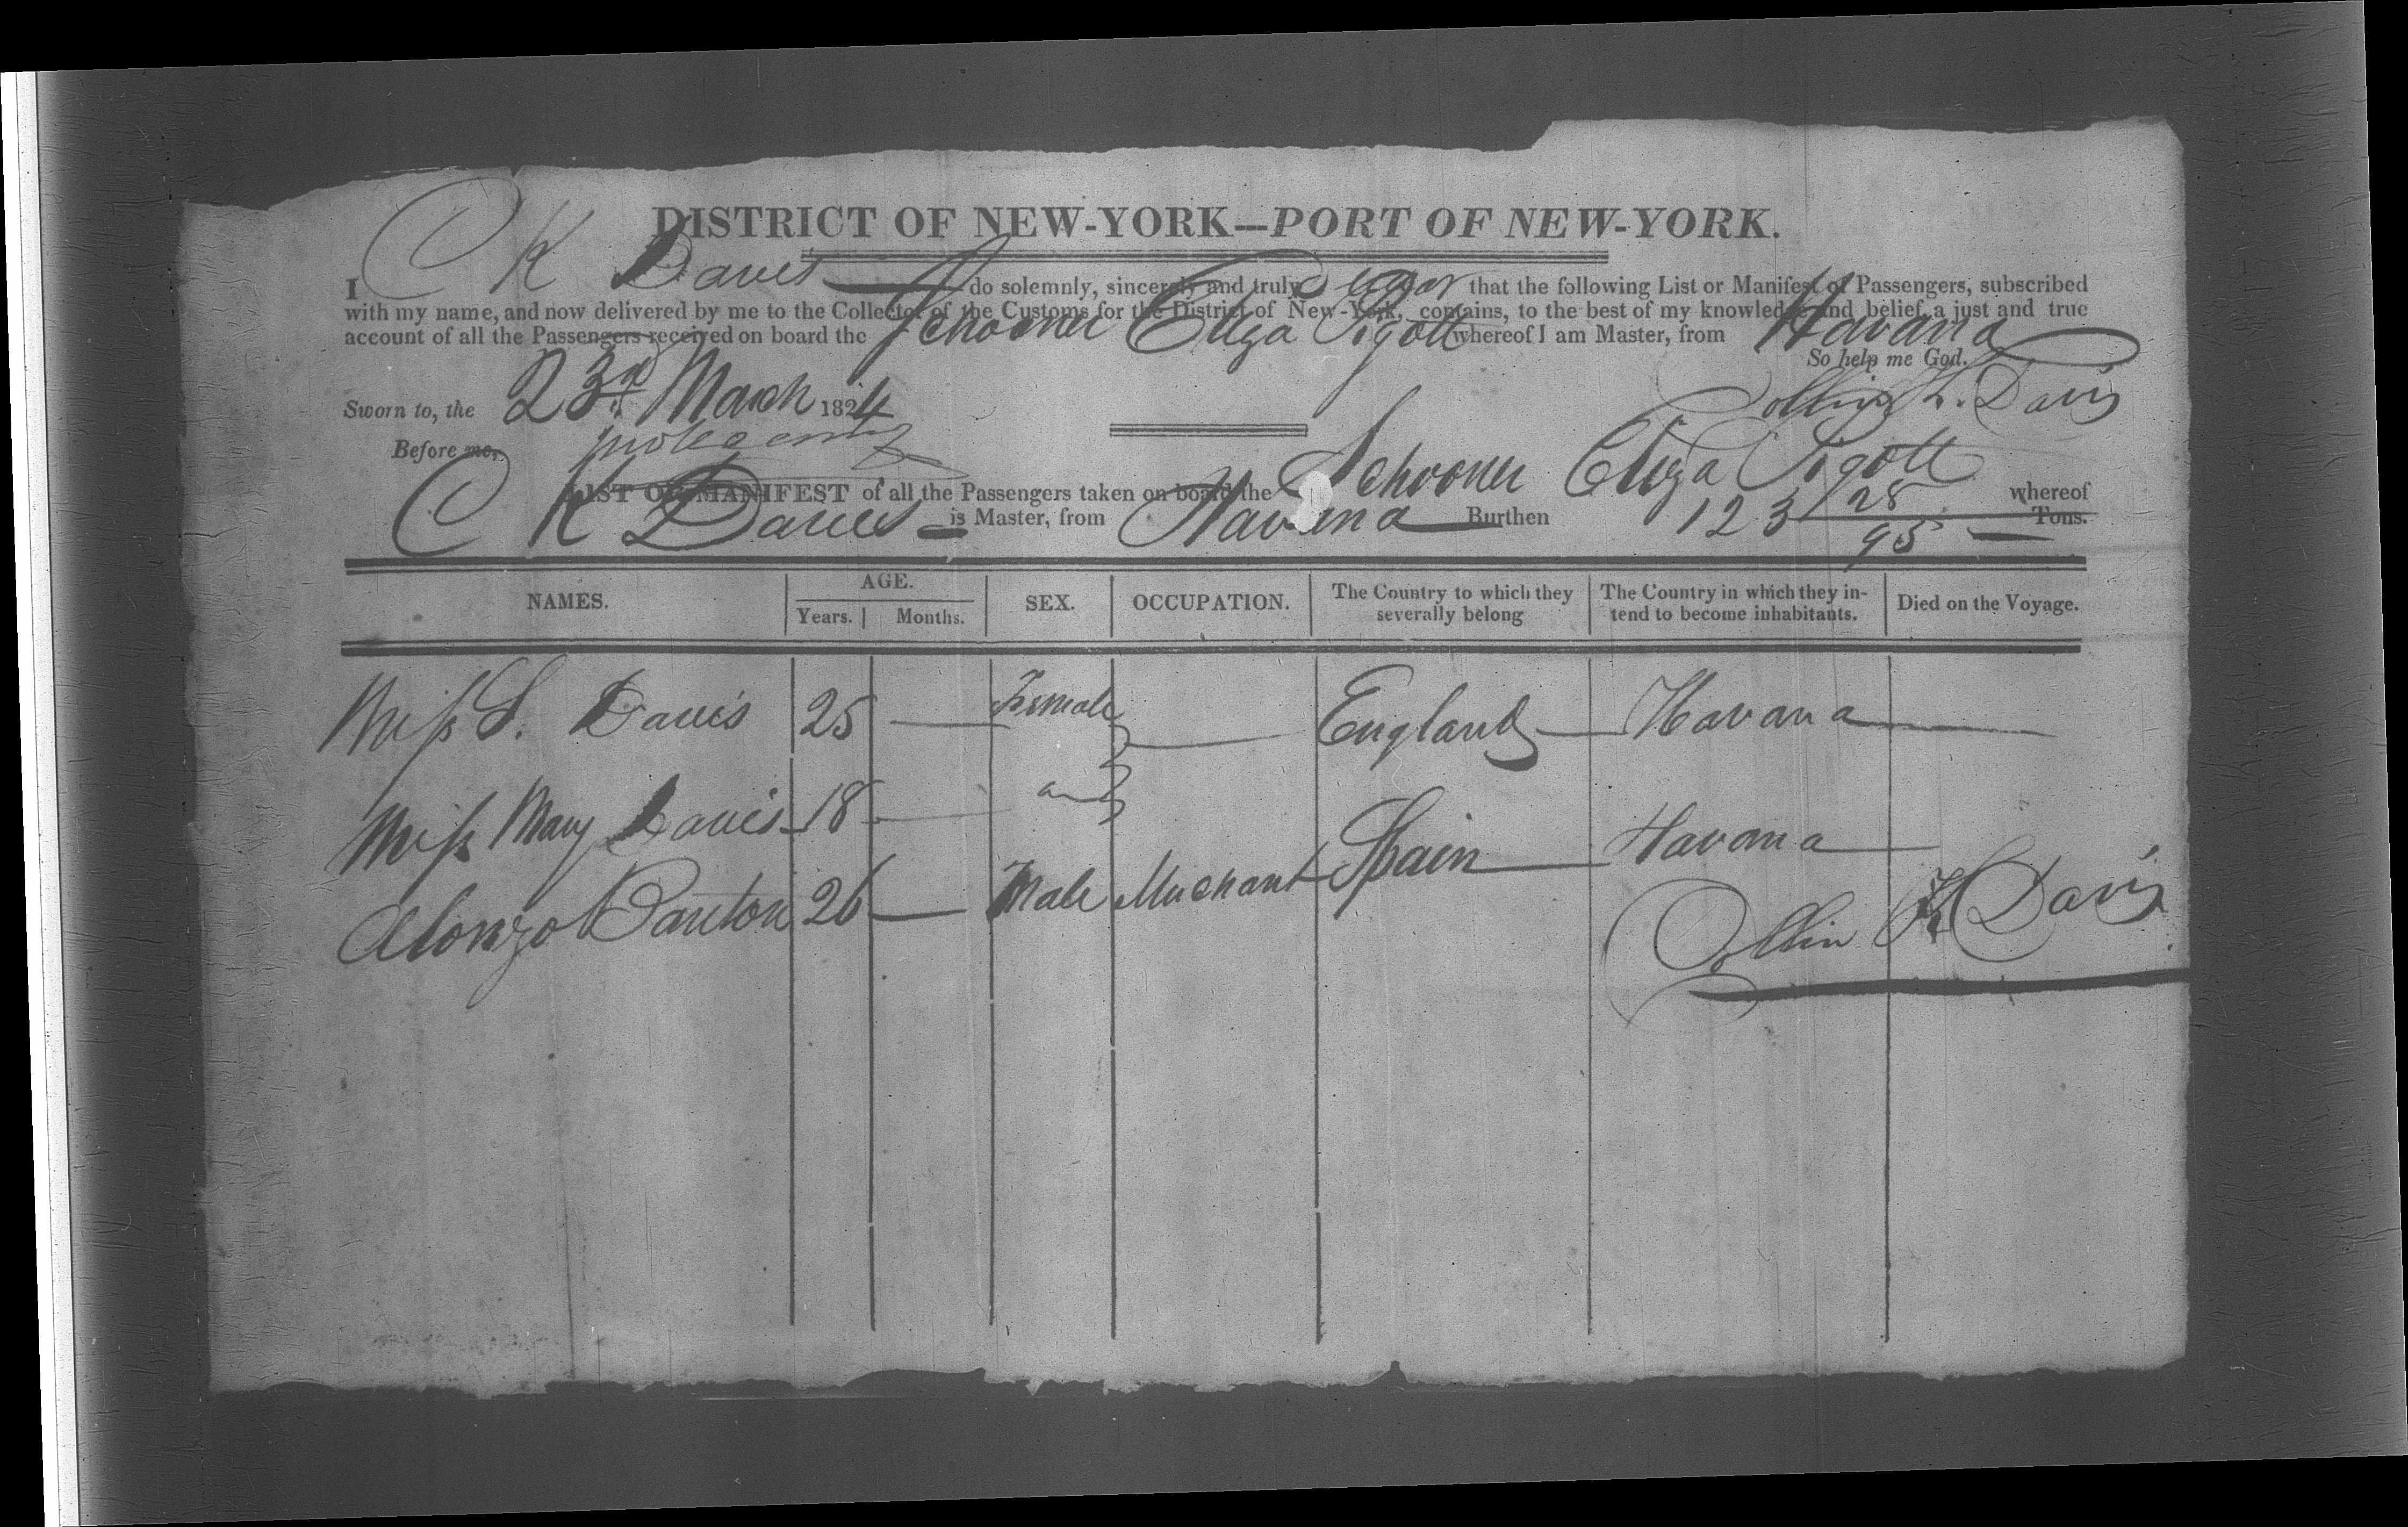 DISTRICT OF NEW-YORK—PORT OF NEW-YORK.
I C K Davis do solemnly, sincerely and truly swear that the following List or Manifest of Passengers, subscribed
with my name, and now delivered by me to the Collector of the Customs for the District of New-York, contains, to the best of my knowledge and belief, a just and true
account of all the Passengers received on board the Schooner Eliza Pigott whereof I am Master, from Havana
So help me God.
Sworn to, the 23rd March 1824 Collin K. Davis
Before me,
LIST OR MANIFEST of all the Passengers taken on board the Schooner Eliza Pigott whereof
C K Davis is Master, from Havana Burthen 123 28/95 Tons.
NAMES. AGE. Years. Months. SEX. OCCUPATION. The Country to which they severally belong The Country in which they intend to become inhabitants. Died on the Voyage.
Miss S. Davis 25 — Female — England — Havana —
Miss Mary Davis 18 —
Alonzo 26 — Male Merchant Spain — Havana —
Collin K Davis